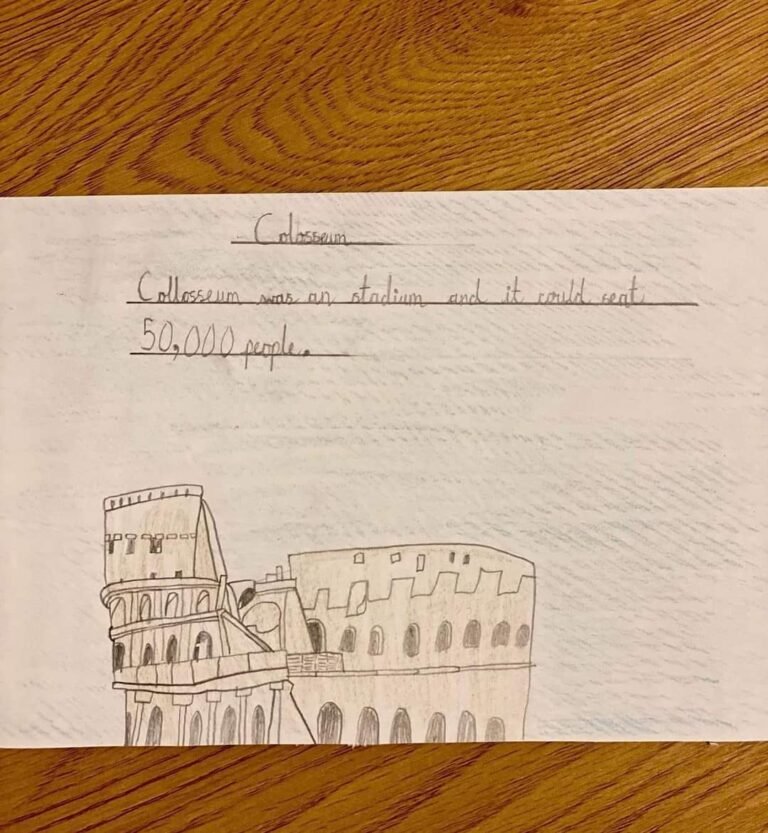 Colosseum
Collosseum was an stadium and it could seat
50,000 people.